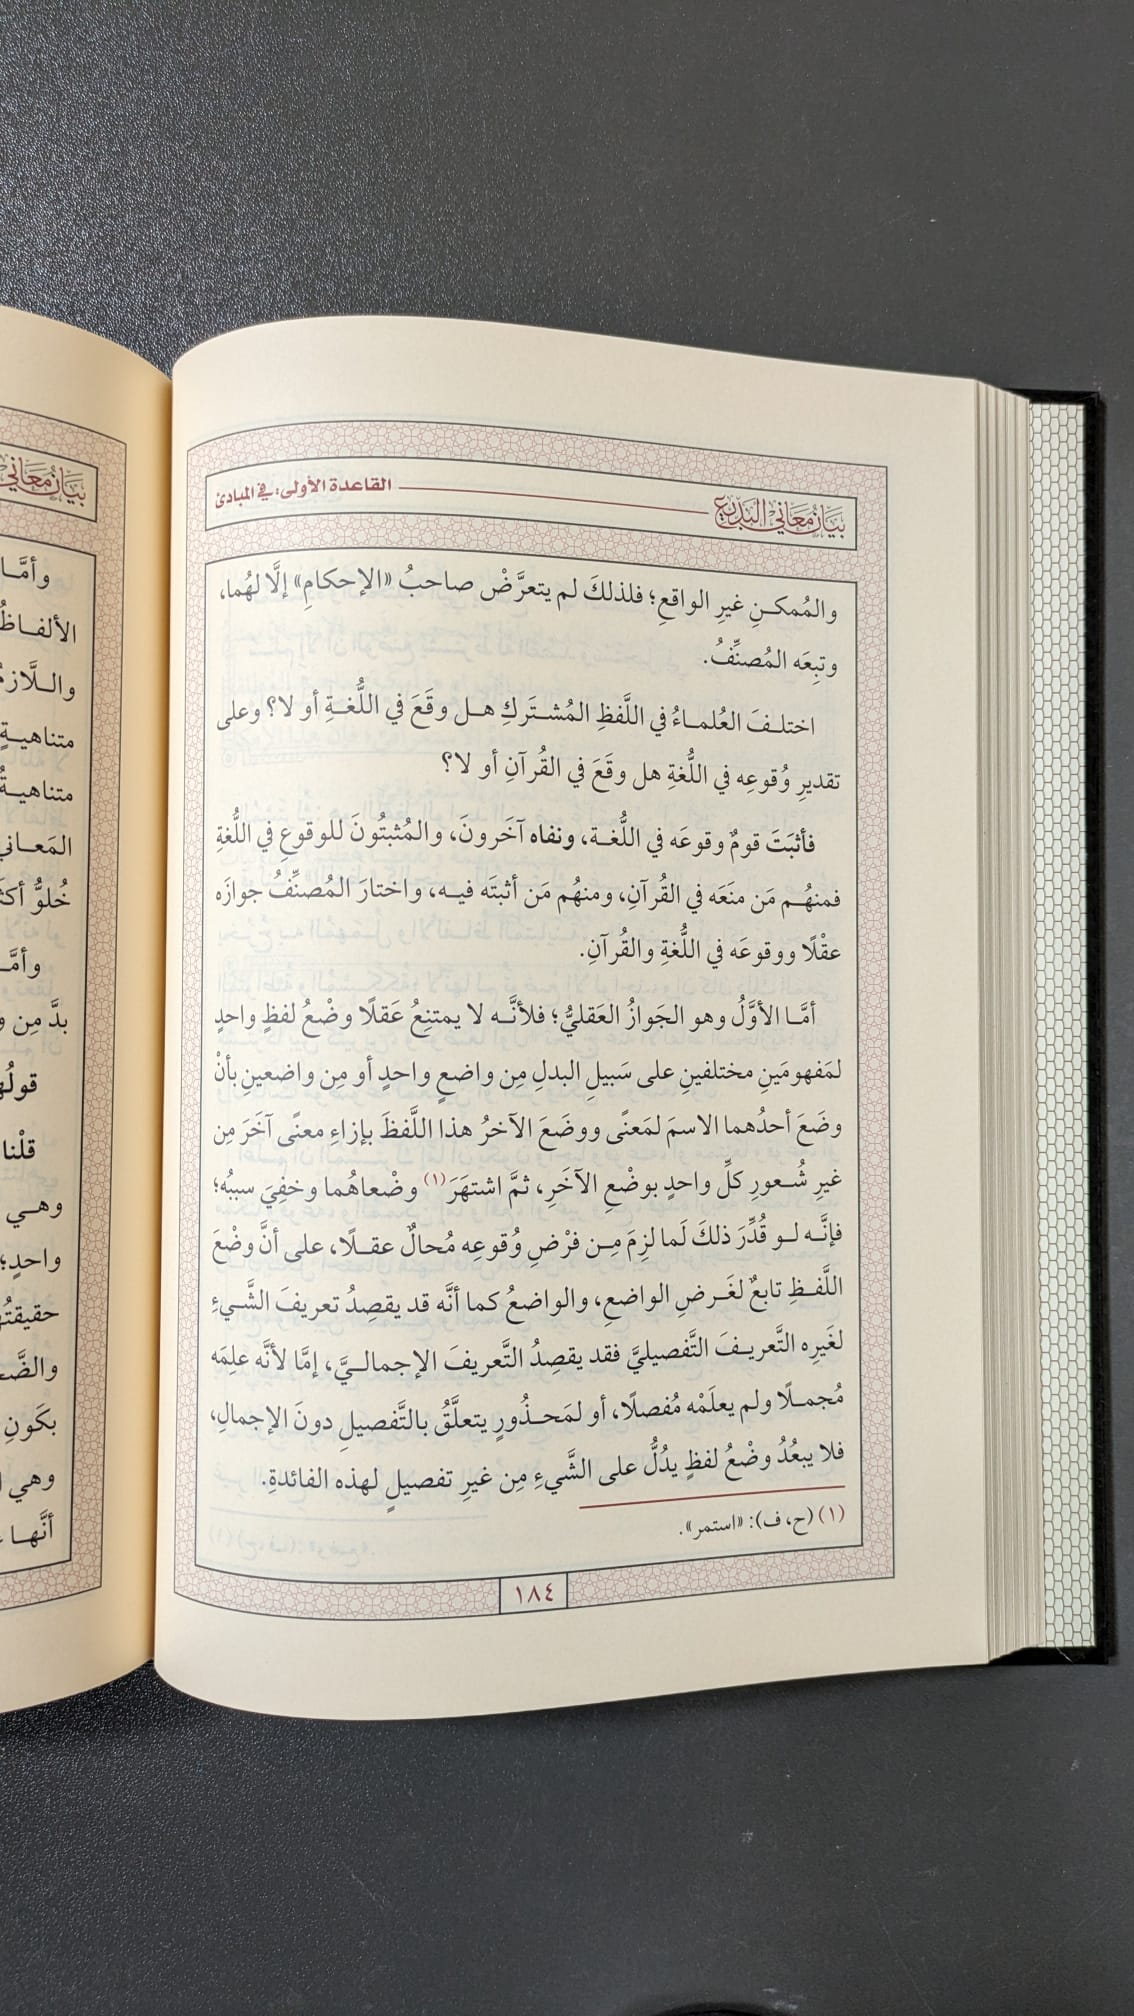 بيان معاني البديع
القاعدة الأولى: في المبادئ
والمُمكنِ غيرِ الواقعِ؛ فلذلكَ لم يتعرَّضْ صاحبُ «الإحكامِ» إلَّا لهُما،
وتبِعَه المُصنِّفُ.
اختلفَ العُلماءُ في اللَّفظِ المُشتَركِ هل وقَعَ في اللُّغةِ أو لا؟ وعلى
تقديرِ وُقوعِه في اللُّغةِ هل وقَعَ في القُرآنِ أو لا؟
فأثبَتَ قومٌ وقوعَه في اللُّغة، ونفاه آخَرونَ، والمُثبتُونَ للوقوعِ في اللُّغةِ
فمنهُم مَن منَعَه في القُرآنِ، ومنهُم مَن أثبتَه فيه، واختارَ المُصنِّفُ جوازَه
عقْلًا ووقوعَه في اللُّغةِ والقُرآنِ.
أمَّا الأوَّلُ وهو الجَوازُ العَقليُّ؛ فلأنَّه لا يمتنِعُ عَقلًا وضْعُ لفظٍ واحدٍ
لمَفهومَينِ مختلفينِ على سَبيلِ البدلِ مِن واضعٍ واحدٍ أو مِن واضعينِ بأنْ
وضَعَ أحدُهما الاسمَ لمَعنًى ووضَعَ الآخرُ هذا اللَّفظَ بإزاءِ معنًى آخَرَ مِن
غيرِ شُعورِ كلِّ واحدٍ بوضْعِ الآخَرِ، ثمَّ اشتهَرَ(١) وضْعاهُما وخفِيَ سببُه؛
فإنَّه لو قُدِّرَ ذلكَ لَما لزِمَ مِن فرْضِ وُقوعِه مُحالٌ عقلًا، على أنَّ وضْعَ
اللَّفظِ تابعٌ لغَرضِ الواضعِ، والواضعُ كما أنَّه قد يقصِدُ تعريفَ الشَّيءِ
لغَيرِه التَّعريفَ التَّفصيليَّ فقد يقصِدُ التَّعريفَ الإجماليَّ، إمَّا لأنَّه علِمَه
مُجملًا ولم يعلَمْه مُفصلًا، أو لمَحذُورٍ يتعلَّقُ بالتَّفصيلِ دونَ الإجمالِ،
فلا يبعُدُ وضْعُ لفظٍ يدُلُّ على الشَّيءِ مِن غيرِ تفصيلٍ لهذه الفائدةِ.
(١) (ح، ف): «استمر».
١٨٤
بيان معاني
وأمَّا
الألفاظُ
متناهيةٍ
خُلوُّ
بدَّ مِن
قلْنا
واحدٍ؛
بكَونِ
وهي
أنَّها